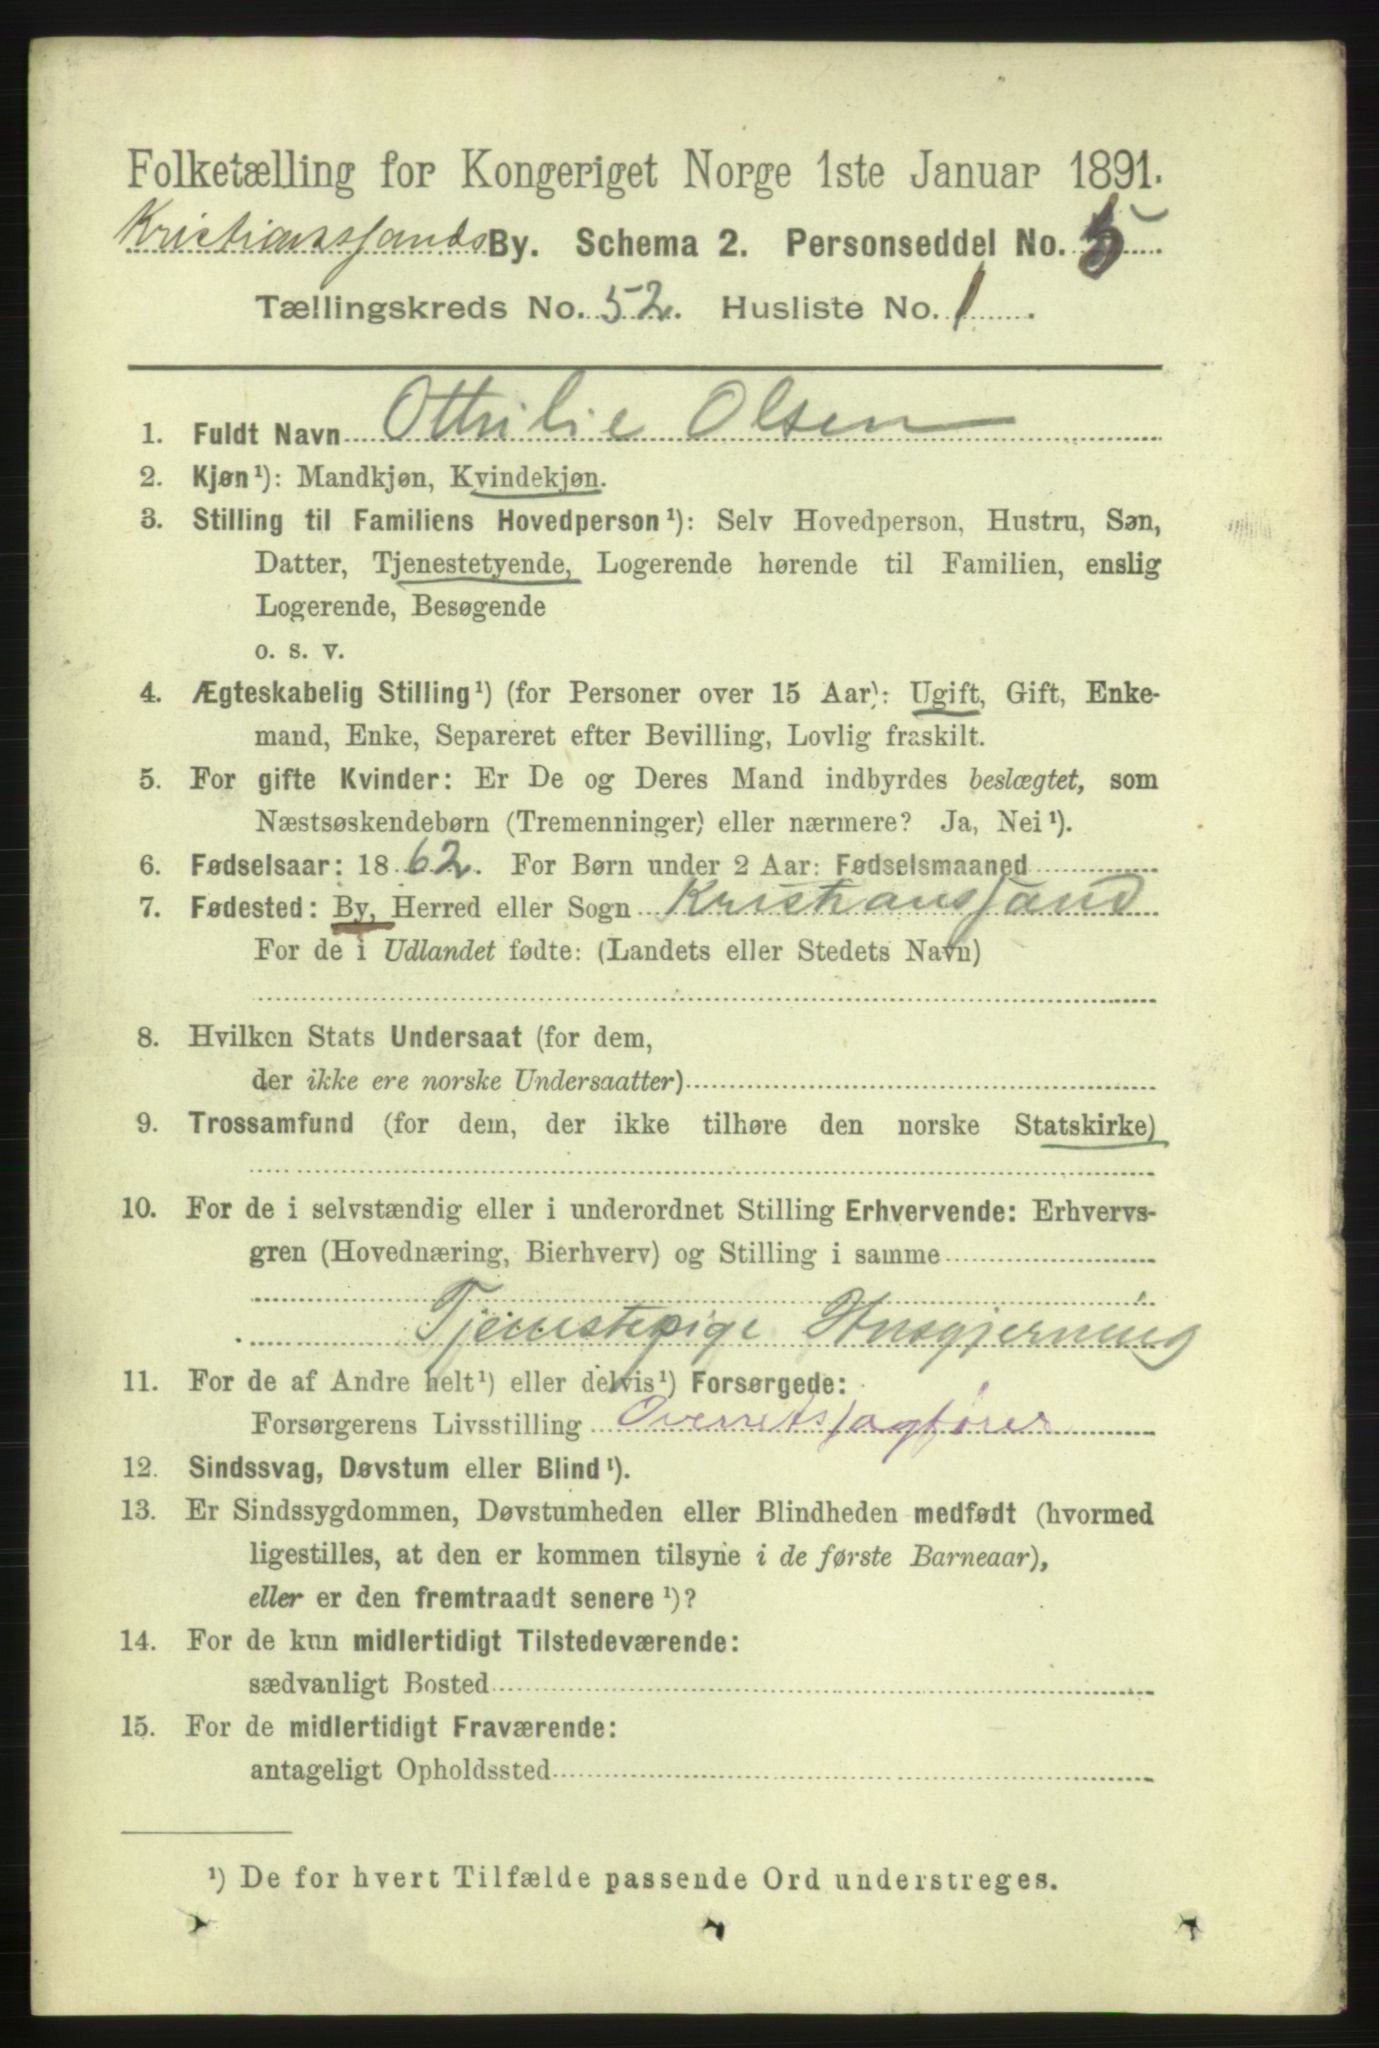 Folketælling for Kongeriget Norge 1ste Januar 1891.
Kristianssands By. Schema 2. Personseddel No. 5
Tællingskreds No. 52. Husliste No. 1.
1. Fuldt Navn Othilie Olsen
2. Kjøn¹): Mandkjøn, Kvindekjøn.
3. Stilling til Familiens Hovedperson¹): Selv Hovedperson, Hustru, Søn,
Datter, Tjenestetyende, Logerende hørende til Familien, enslig
Logerende, Besøgende
o. s. v.
4. Ægteskabelig Stilling¹) (for Personer over 15 Aar): Ugift, Gift, Enke-
mand, Enke, Separeret efter Bevilling, Lovlig fraskilt.
5. For gifte Kvinder: Er De og Deres Mand indbyrdes beslægtet, som
Næstsøskendebørn (Tremenninger) eller nærmere? Ja, Nei¹).
6. Fødselsaar: 1862. For Børn under 2 Aar: Fødselsmaaned
7. Fødested: By, Herred eller Sogn Kristianssand
For de i Udlandet fødte: (Landets eller Stedets Navn)
8. Hvilken Stats Undersaat (for dem,
der ikke ere norske Undersaatter)
9. Trossamfund (for dem, der ikke tilhøre den norske Statskirke)
10. For de i selvstændig eller i underordnet Stilling Erhvervende: Erhvervs-
gren (Hovednæring, Bierhverv) og Stilling i samme
Tjenestepige Husgjerning
11. For de af Andre helt¹) eller delvis¹) Forsørgede:
Forsørgerens Livsstilling Overretssagfører
12. Sindssvag, Døvstum eller Blind¹).
13. Er Sindssygdommen, Døvstumheden eller Blindheden medfødt (hvormed
ligestilles, at den er kommen tilsyne i de første Barneaar),
eller er den fremtraadt senere¹)?
14. For de kun midlertidigt Tilstedeværende:
sædvanligt Bosted
15. For de midlertidigt Fraværende:
antageligt Opholdssted
¹) De for hvert Tilfælde passende Ord understreges.